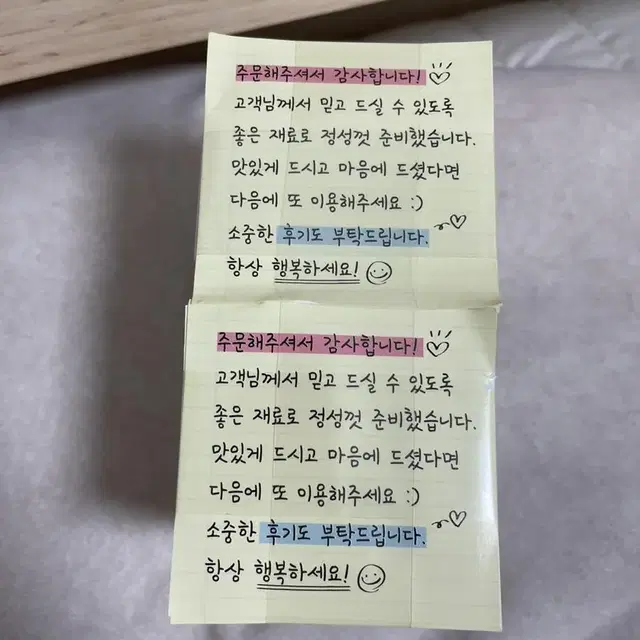 주문해주셔서 감사합니다!
고객님께서 믿고 드실 수 있도록
좋은 재료로 정성껏 준비했습니다.
맛있게 드시고 마음에 드셨다면
다음에 또 이용해주세요 :)
소중한 후기도 부탁드립니다.
항상 행복하세요!
주문해주셔서 감사합니다!
고객님께서 믿고 드실 수 있도록
좋은 재료로 정성껏 준비했습니다.
맛있게 드시고 마음에 드셨다면
다음에 또 이용해주세요 :)
소중한 후기도 부탁드립니다.
항상 행복하세요!